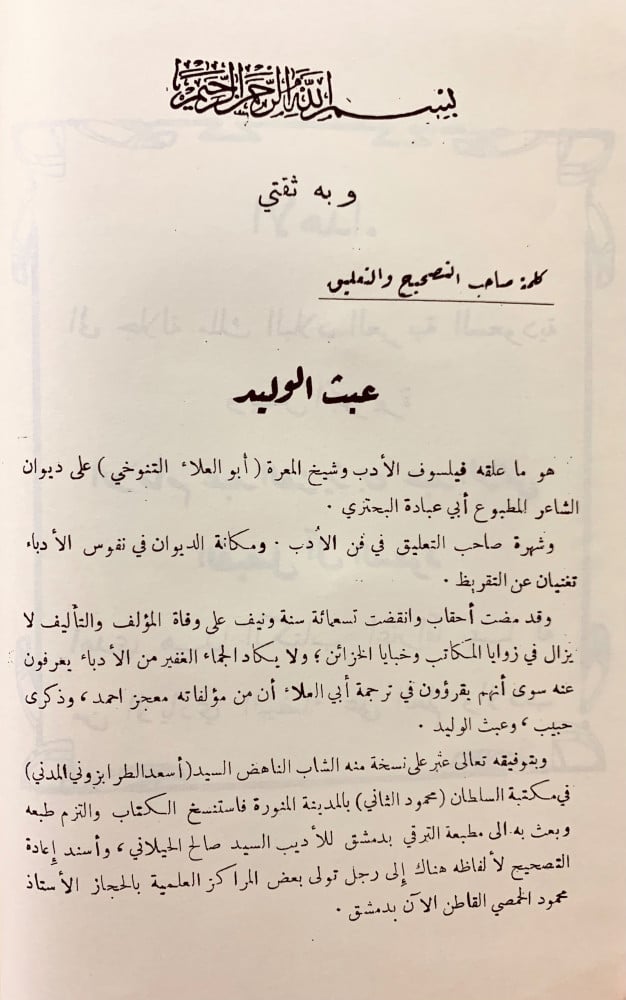 بسم الله الرحمن الرحيم
وبه ثقتي
كلمة صاحب التصحيح والتعليق
عبث الوليد
هو ما علقه فيلسوف الأدب وشيخ المعرة (أبو العلاء التنوخي) على ديوان
الشاعر المطبوع أبي عبادة البحتري .
وشهرة صاحب التعليق في فن الأدب . ومكانة الديوان في نفوس الأدباء
تغنيان عن التقريظ .
وقد مضت أحقاب وانقضت تسعمائة سنة ونيف على وفاة المؤلف والتأليف لا
يزال في زوايا المكاتب وخبايا الخزائن ؛ ولا يكاد الجماء الغفير من الأدباء يعرفون
عنه سوى أنهم يقرؤون في ترجمة أبي العلاء أن من مؤلفاته معجز احمد ، وذكرى
حبيب ، وعبث الوليد .
وبتوفيقه تعالى عثر على نسخة منه الشاب الناهض السيد (أسعد الطرابزوني المدني)
في مكتبة السلطان (محمود الثاني) بالمدينة المنورة فاستنسخ الكتاب والتزم طبعه
وبعث به الى مطبعة الترقي بدمشق للأديب السيد صالح الحيلاني ، وأسند إعادة
التصحيح لألفاظه هناك إلى رجل تولى بعض المراكز العلمية بالحجاز الأستاذ
محمود الحمصي القاطن الآن بدمشق .